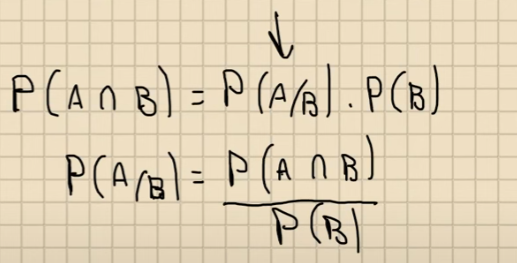 P(A ∩ B) = P(A/B) . P(B)
P(A/B) = P(A ∩ B)
P(B)